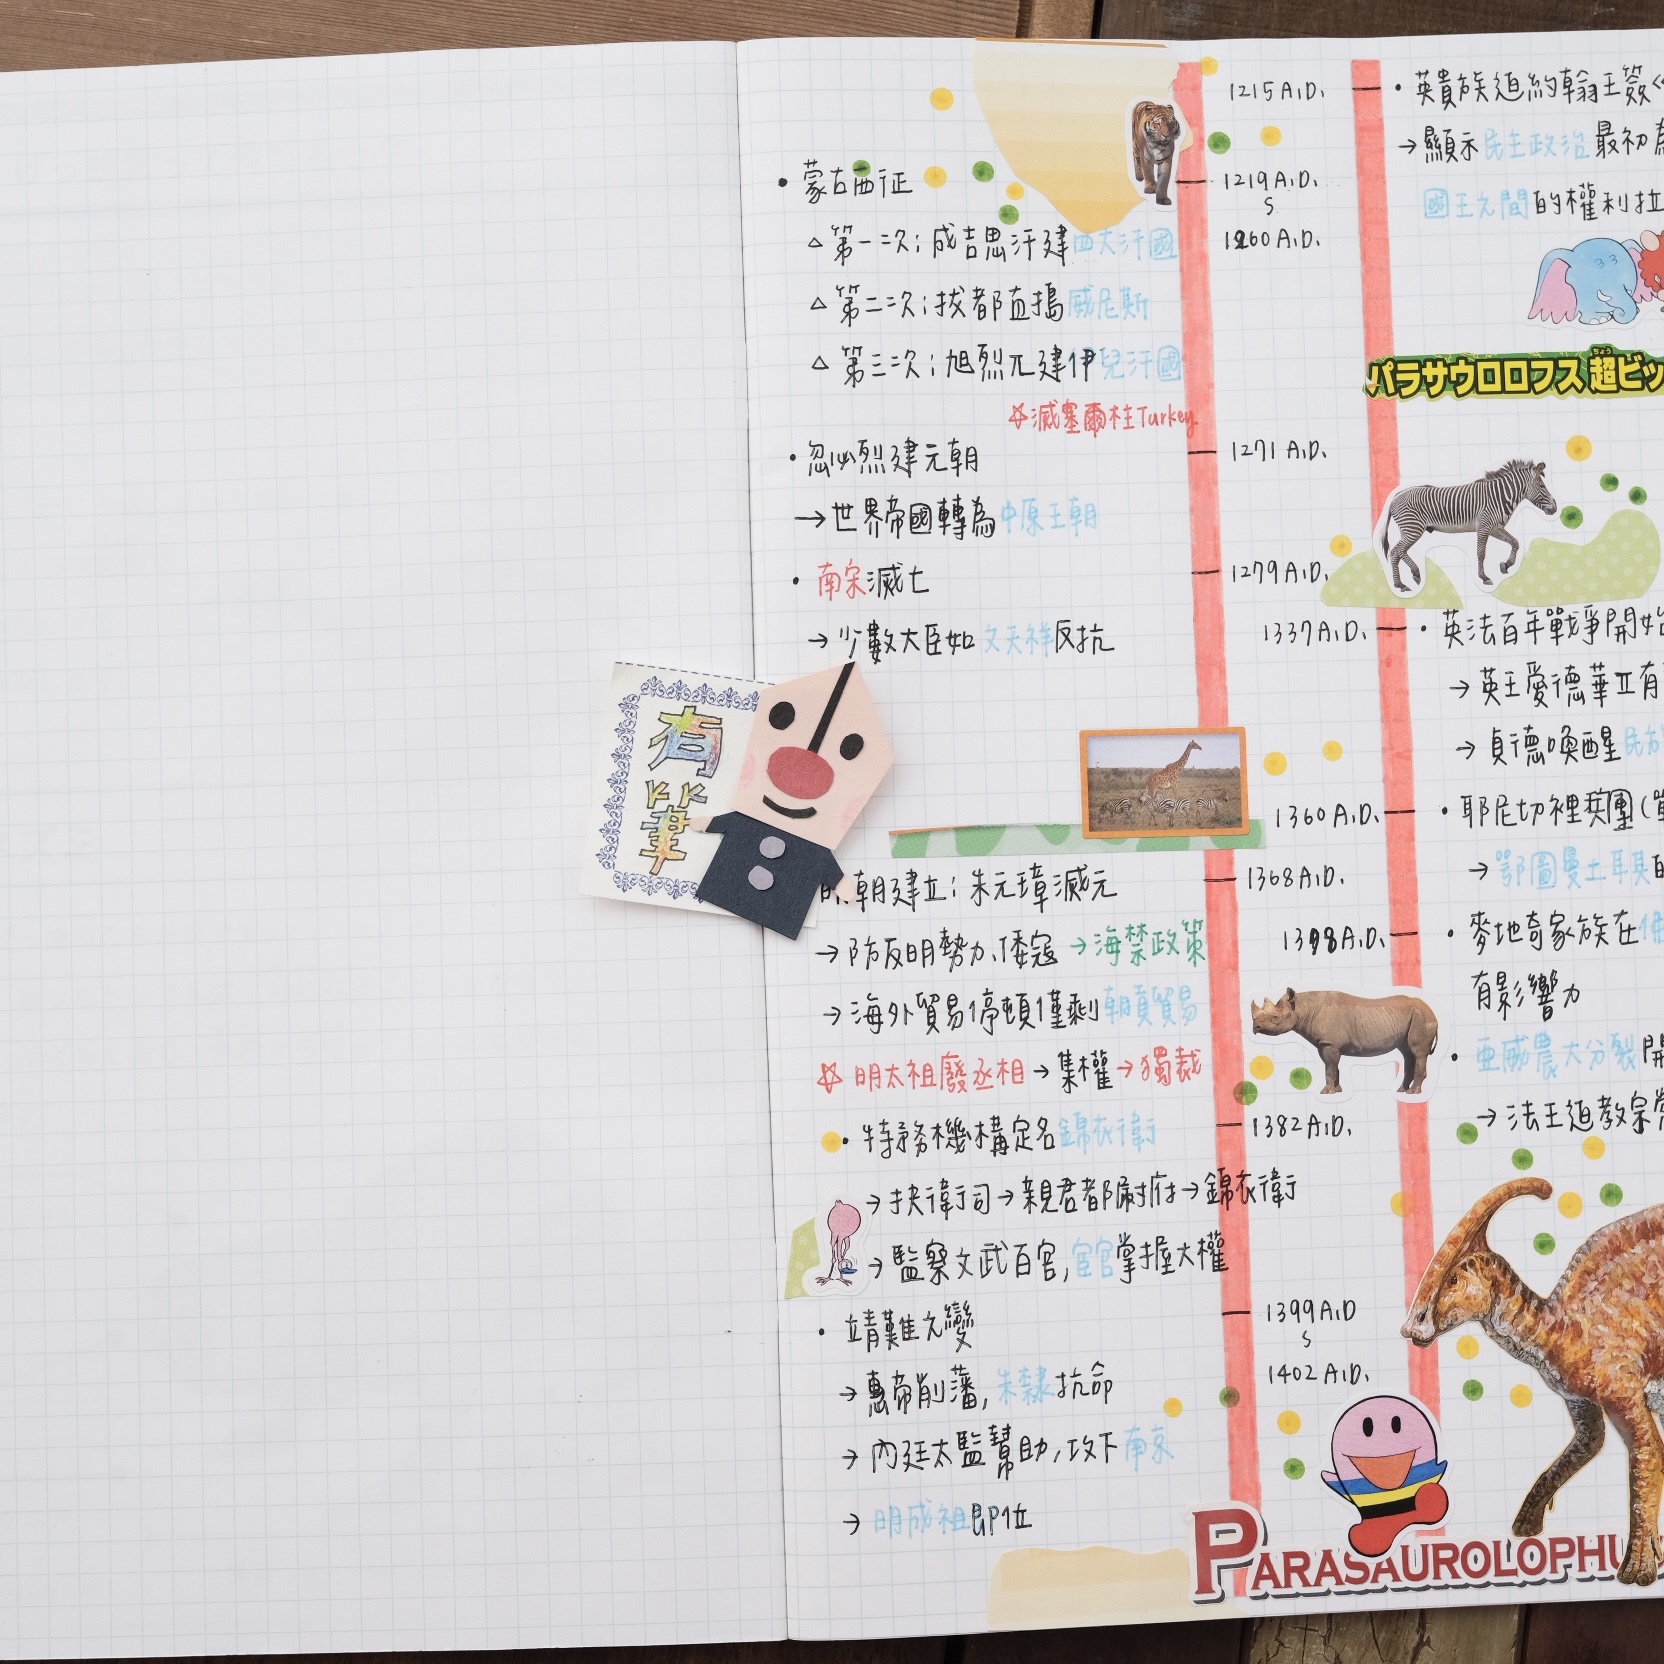 1215 A.D.
• 英貴族迫約翰王簽
→ 顯示民主政治最初為
國王之間的權利拉
• 蒙古西征
1219 A.D.
S
1260 A.D.
△ 第一次:成吉思汗建四大汗國
△ 第二次:拔都直搗威尼斯
△ 第三次:旭烈兀建伊兒汗國
☆滅塞爾柱Turkey
パラサウロロフス 超ビッ
ちょう
• 忽必烈建元朝
1271 A.D.
→ 世界帝國轉為中原王朝
• 南宋滅亡
1279 A.D.
→ 少數大臣如文天祥反抗
1337 A.D.
• 英法百年戰爭開始
→ 英王愛德華立有
→ 貞德喚醒民族
有隻筆
1360 A.D.
• 耶尼切裡兵團(
→ 鄂圖曼土耳其的
明朝建立:朱元璋滅元
1368 A.D.
→ 防反明勢力、倭寇 → 海禁政策
1398 A.D.
• 麥地奇家族在
有影響力
→ 海外貿易停頓僅剩朝貢貿易
☆ 明太祖廢丞相 → 集權 → 獨裁
• 亞威農大分裂開
→ 法王迫教宗
• 特務機構定名錦衣衛
1382 A.D.
→ 拱衛司 → 親君都尉府 → 錦衣衛
→ 監察文武百官,宦官掌握大權
• 靖難之變
1399 A.D
S
1402 A.D.
→ 惠帝削藩,朱隸抗命
→ 內廷太監幫助,攻下南京
→ 明成祖即位
PARASAUROLOPHU